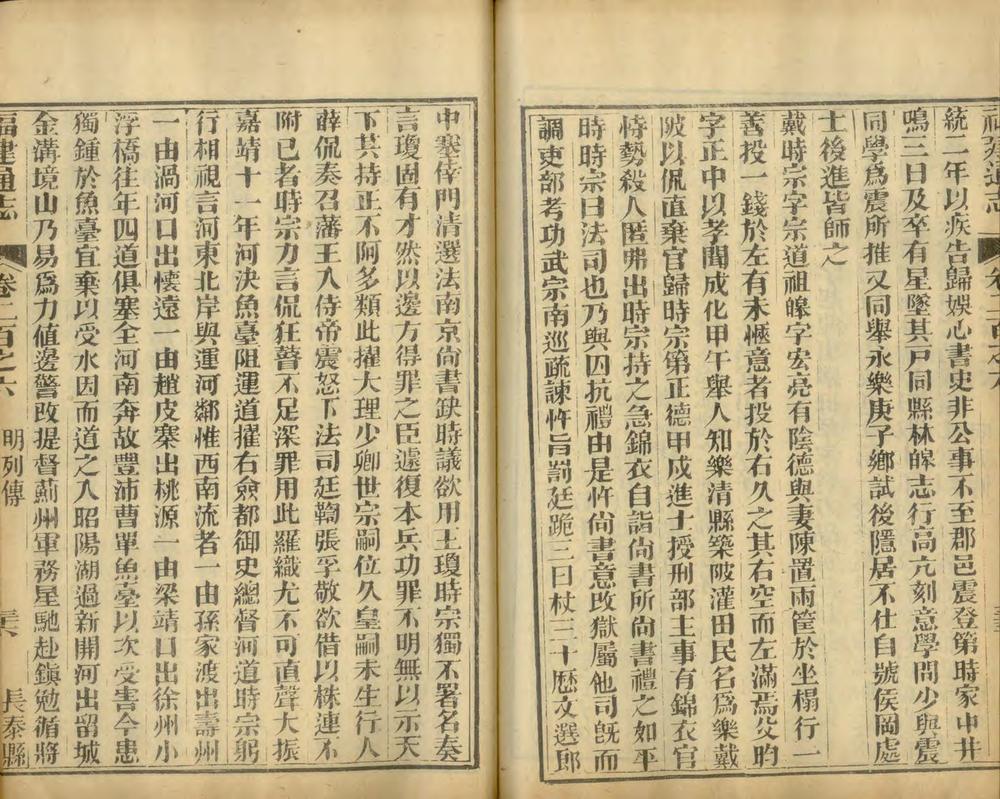 福建通志 卷二百之六
統二年以疾告歸娛心書史非公事不至郡邑震登第時家中井
鳴三日及卒有星墜其戸同縣林皞志行高亢刻意學問少與震
同學爲震所推又同舉永樂庚子鄉試後隱居不仕自號侯岡處
士後進皆師之
戴時宗字宗道祖皞字宏亮有陰德與妻陳置兩筐於坐榻行一
善投一錢於左有未愜意者投於右久之其右空而左滿焉父昀
字正中以孝聞成化甲午舉人知樂清縣築陂灌田民名爲樂戴
陂以侃直棄官歸時宗第正德甲戌進士授刑部主事有錦衣官
恃勢殺人匿弗出時宗持之急錦衣自詣尚書所尚書禮之如平
時時宗曰法司也乃與囚抗禮由是忤尚書意改獄屬他司旣而
調吏部考功武宗南巡疏諫忤旨罰廷跪三日杖三十歴文選郎
中塞倖門清選法南京尚書缺時議欲用王瓊時宗獨不署名奏
言瓊固有才然以邊方得罪之臣遽復本兵功罪不明無以示天
下其持正不阿多類此擢大理少卿世宗嗣位久皇嗣未生行人
薛侃奏召藩王入侍帝震怒下法司廷鞫張孚敬欲借以株連不
附已者時宗力言侃狂瞽不足深罪用此羅織尤不可直聲大振
嘉靖十一年河決魚臺阻運道擢右僉都御史總督河道時宗躬
行相視言河東北岸與運河鄰惟西南流者一由孫家渡出壽州
一由渦河口出懷遠一由趙皮寨出桃源一由梁靖口出徐州小
浮橋往年四道俱塞全河南奔故豐沛曹單魚臺以次受害今患
獨鍾於魚臺宜棄以受水因而道之入昭陽湖過新開河出留城
金溝境山乃易爲力値邊警改提督薊州軍務星馳赴鎭勉循將
福建通志 卷二百之六 明列傳 長泰縣